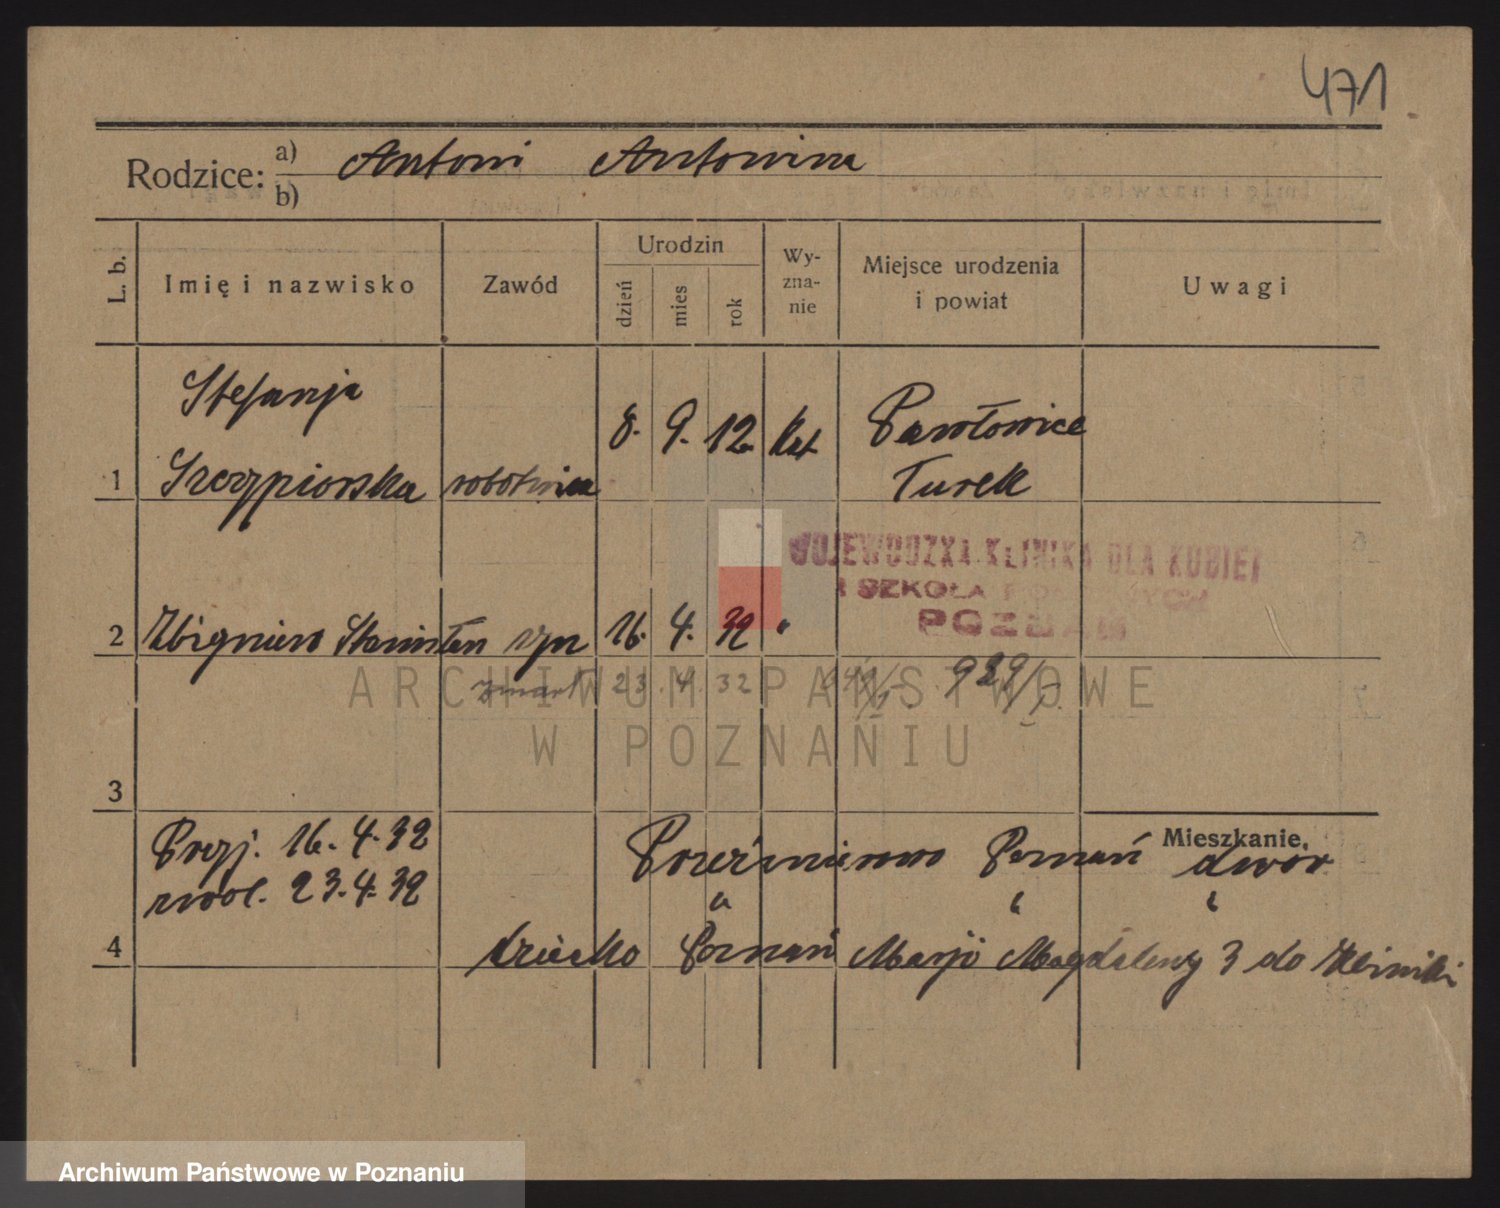 471
Rodzice: a) Antoni Antonina
b)
L. b.
Imię i nazwisko
Zawód
Urodzin
dzień
mies
rok
Wy-
zna-
nie
Miejsce urodzenia
i powiat
Uwagi
Stefanja
8. 9. 12. kat Pawłowice
1 Szczypiorska robotnica Turek
WOJEWÓDZKA KLINIKA DLA KOBIET
I SZKOŁA POŁOŻNYCH
POZNAŃ
2 Zbigniew Stanisław syn 16. 4. 32 "
zmarł 23. 4. 32 929/
ARCHIWUM PAŃSTWOWE
W POZNANIU
3
Mieszkanie.
Przyj. 16. 4. 32 Przeźmierowo Poznań dwór
23. 4. 32 " " "
4 dziecko Poznań Marji Magdaleny 3 do kliniki
Archiwum Państwowe w Poznaniu